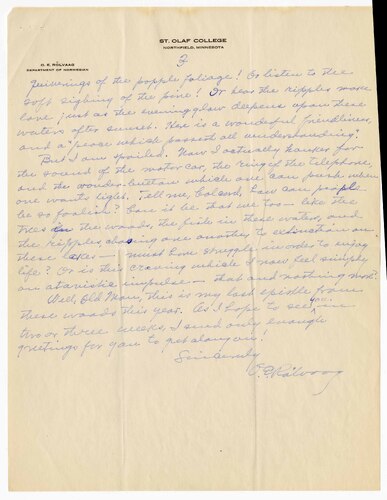 ST. OLAF COLLEGE
NORTHFIELD, MINNESOTA
2
O. E. RÖLVAAG
DEPARTMENT OF NORWEGIAN
of the popple foliage! Or listen to the
soft sighing of the pine! Or hear the ripples make
love just as the evening glow deepens upon these
waters after sunset. Here is a wonderful friendliness,
and a "peace which passeth all understanding."
But I am spoiled. Now I actually hanker for
the sound of the motor car, the ring of the telephone,
and the wonder-button which one can push when
one wants light. Tell me, how can people
be so foolish? Can it be that we too — like the
trees in the woods, the fish in these waters, and
the ripples chasing one another to extinction on
these lakes — must have struggle in order to enjoy
life? Or is this craving which I now feel simply
an atavistic impulse — that and nothing more?
Well, Old Man, this is my last epistle from
these woods this year. As I hope to see you in
two or three weeks, I send only enough
greetings for you to get along on!
Sincerely
O. E. Rölvaag